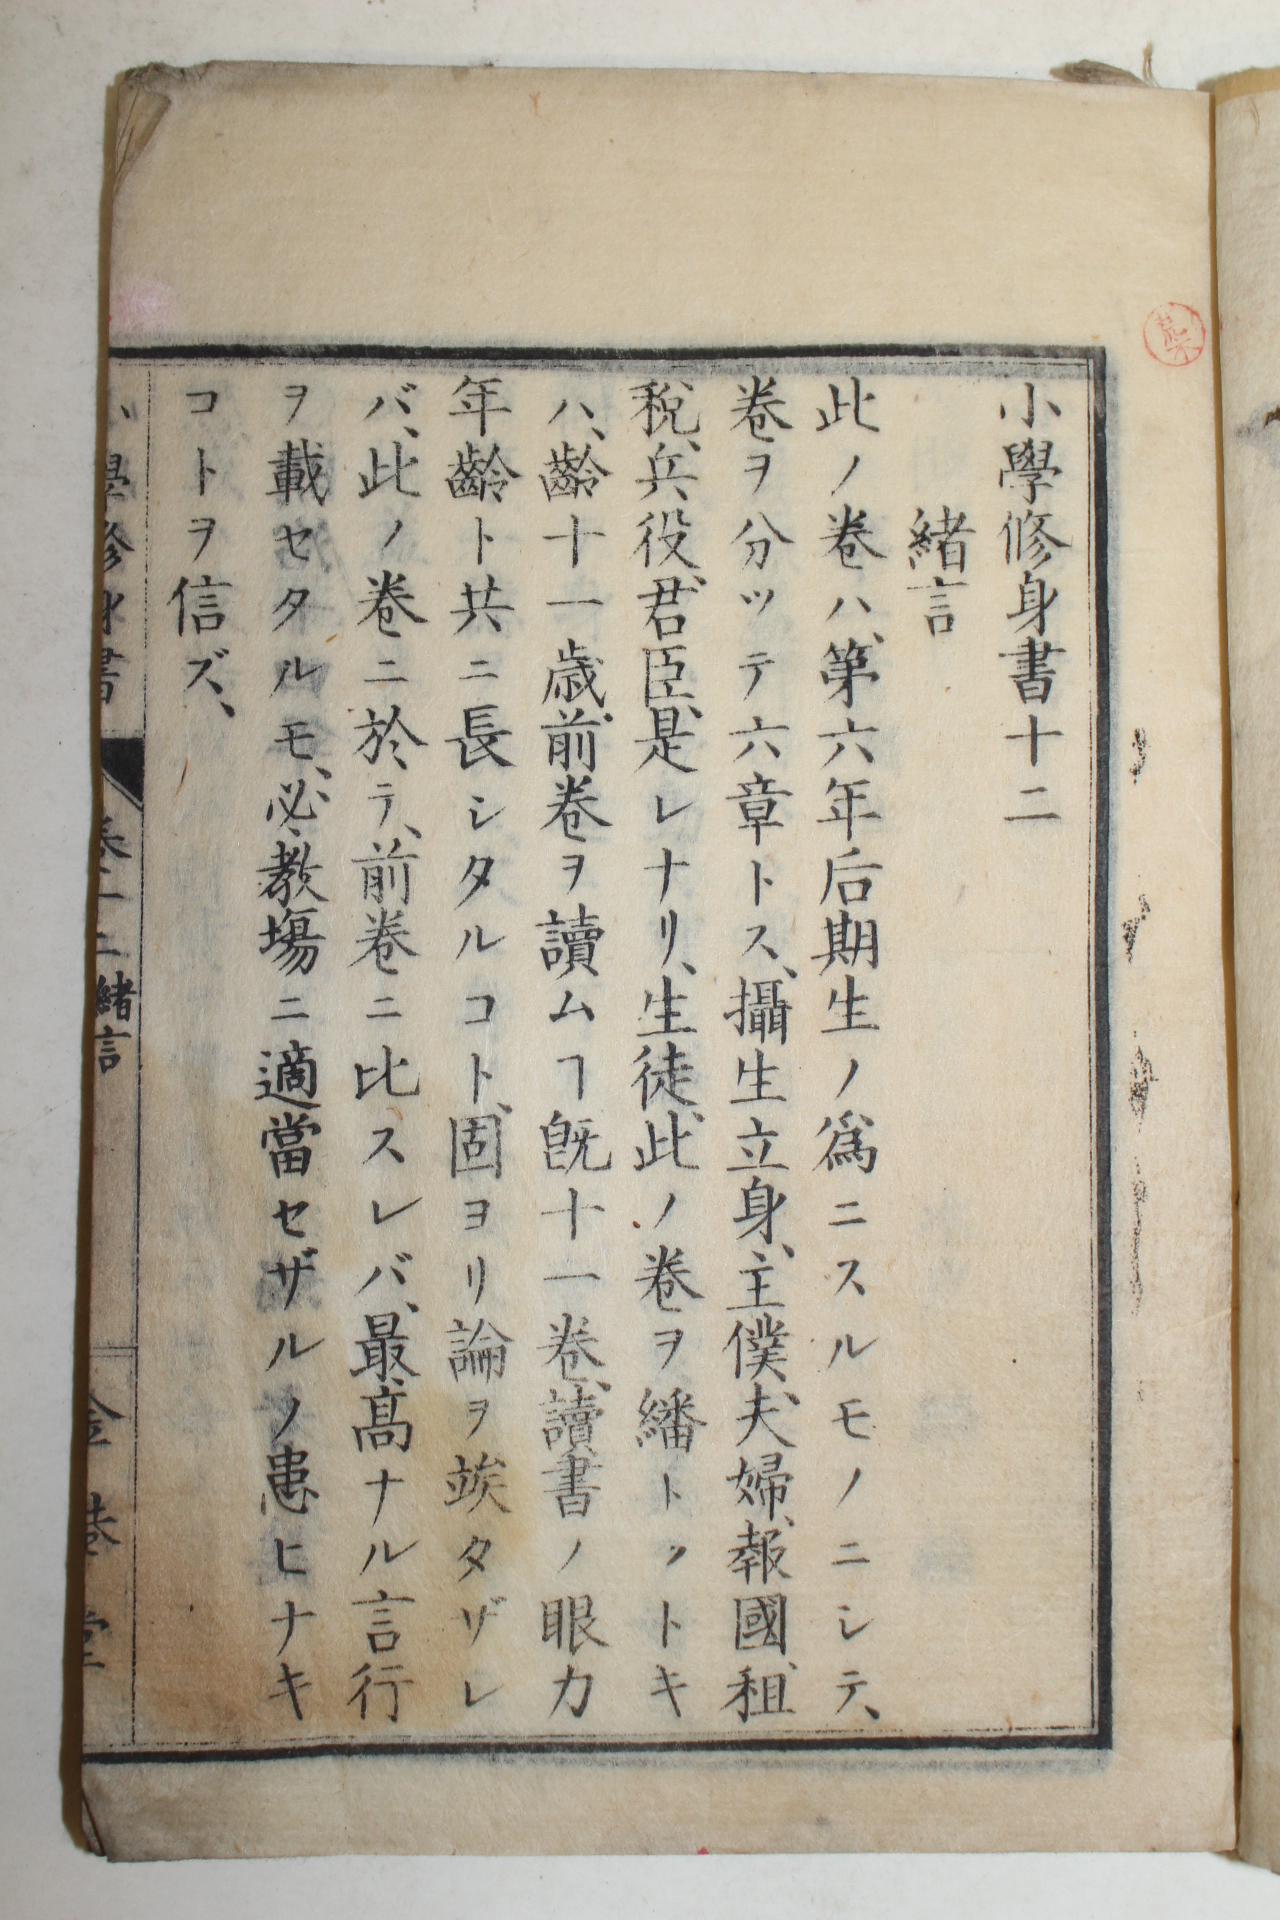 小學修身書十二
緒言
此ノ卷ハ、第六年后期生ノ爲ニスルモノニシテ、
卷ヲ分ツテ六章トス、攝生立身、主僕、夫婦、報國、租
稅、兵役、君臣、是レナリ、生徒、此ノ卷ヲ繙トットキ
ハ、齡十一歲、前卷ヲ讀ムヿ旣十一卷、讀書ノ眼力
年齡ト共ニ長シタルコト、固ヨリ論ヲ竢タザレ
バ、此ノ卷ニ於テ、前卷ニ比スレバ、最高ナル言行
ヲ載セタルモ、必、教塲ニ適當セザルノ患ヒナキ
コトヲ信ズ、
小學修身書 卷十二緒言 金港堂